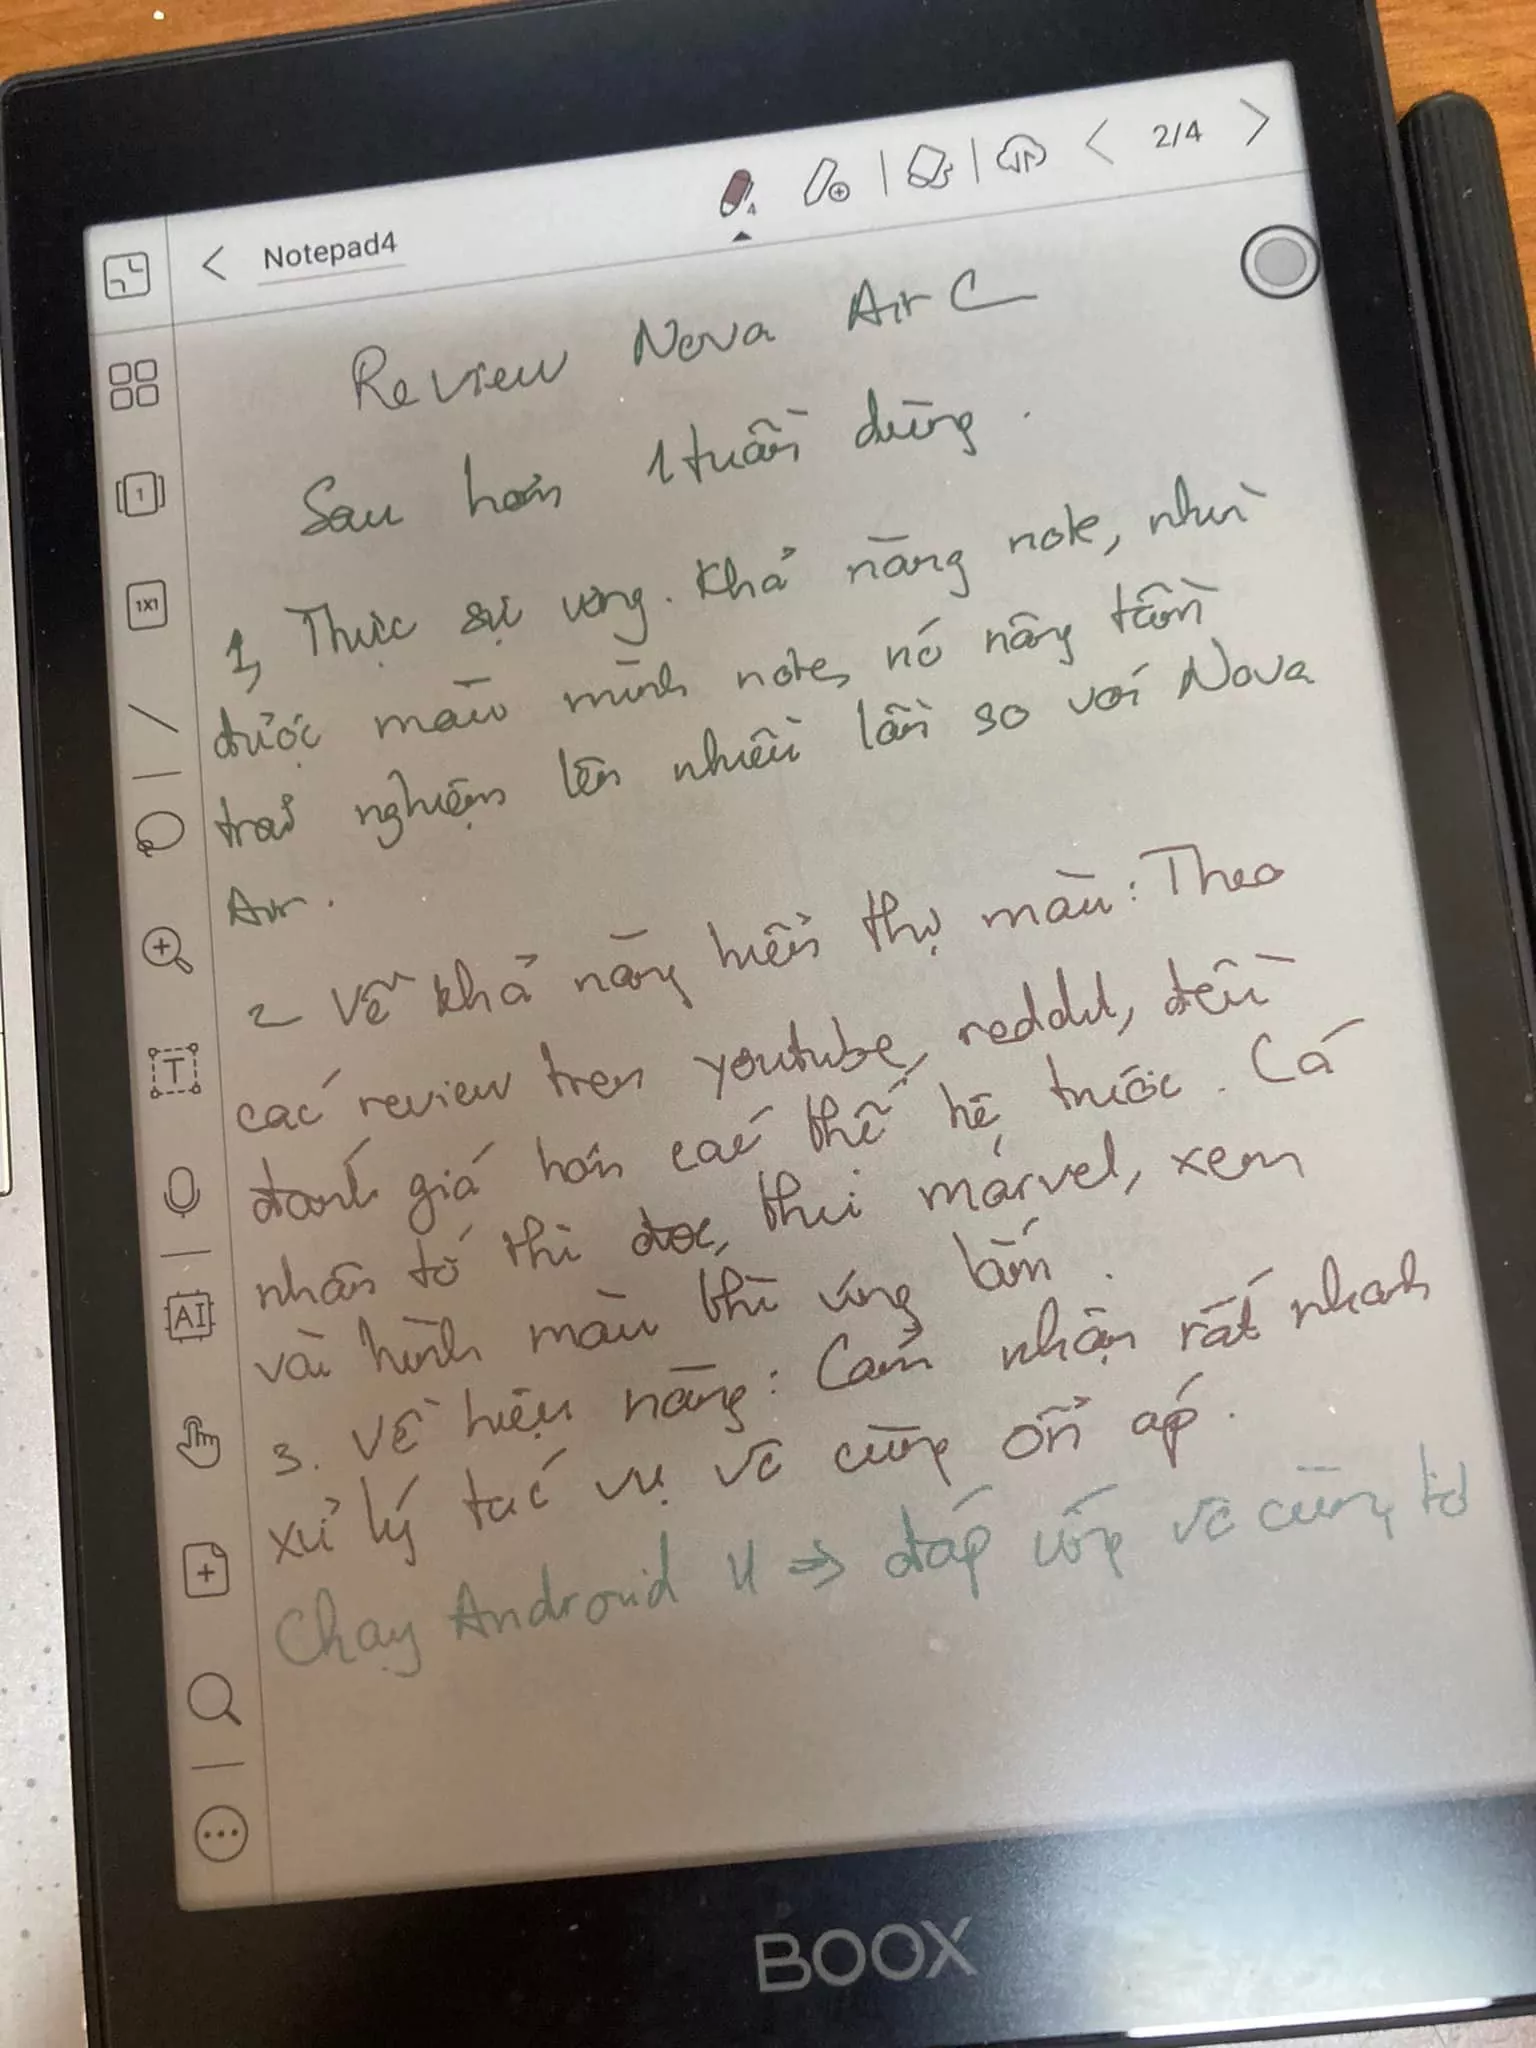 2/4
Notepad4
Review Nova Air C
Sau hơn 1 tuần dùng.
1, Thực sự ưng. Khả năng note, nhìn
được màu mình note, nó nâng tầm
trải nghiệm lên nhiều lần so với Nova
Air.
2 Về khả năng hiển thị màu: Theo
các review trên youtube, reddit, đều
đánh giá hơn các thế hệ trước. Cá
nhân tớ thì đọc, thui marvel, xem
vài hình màu thì ứng lắm.
3. Về hiệu năng: Cảm nhận rất nhanh
xử lý tác vụ vô cùng ổn áp.
Chạy Android 11 => đáp ứng vô cùng tố
1
1X1
T
AI
4
BOOX